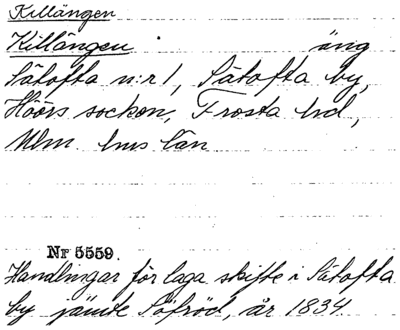 Killängen
Killängen äng
Sätofta n:r 1, Sätofta by,
Höörs socken, Frosta hd,
Mlm hus län
Nr 5559.
Handlingar för laga skifte i Sätofta
by jämte Söfröd, år 1834.